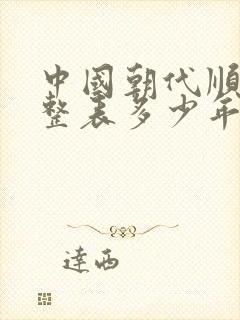 中國朝代順
整表多少年
達西